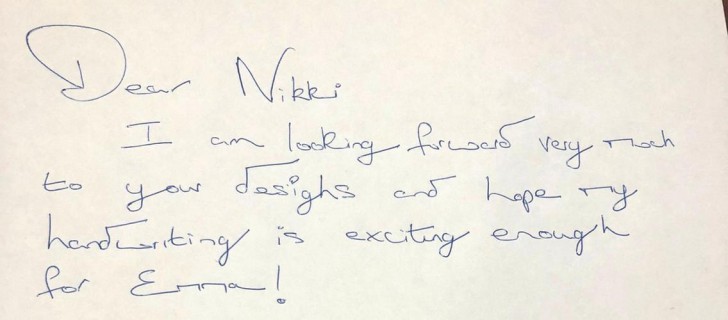 Dear Nikki
I am looking forward very much
to your designs and hope my
handwriting is exciting enough
for Emma!